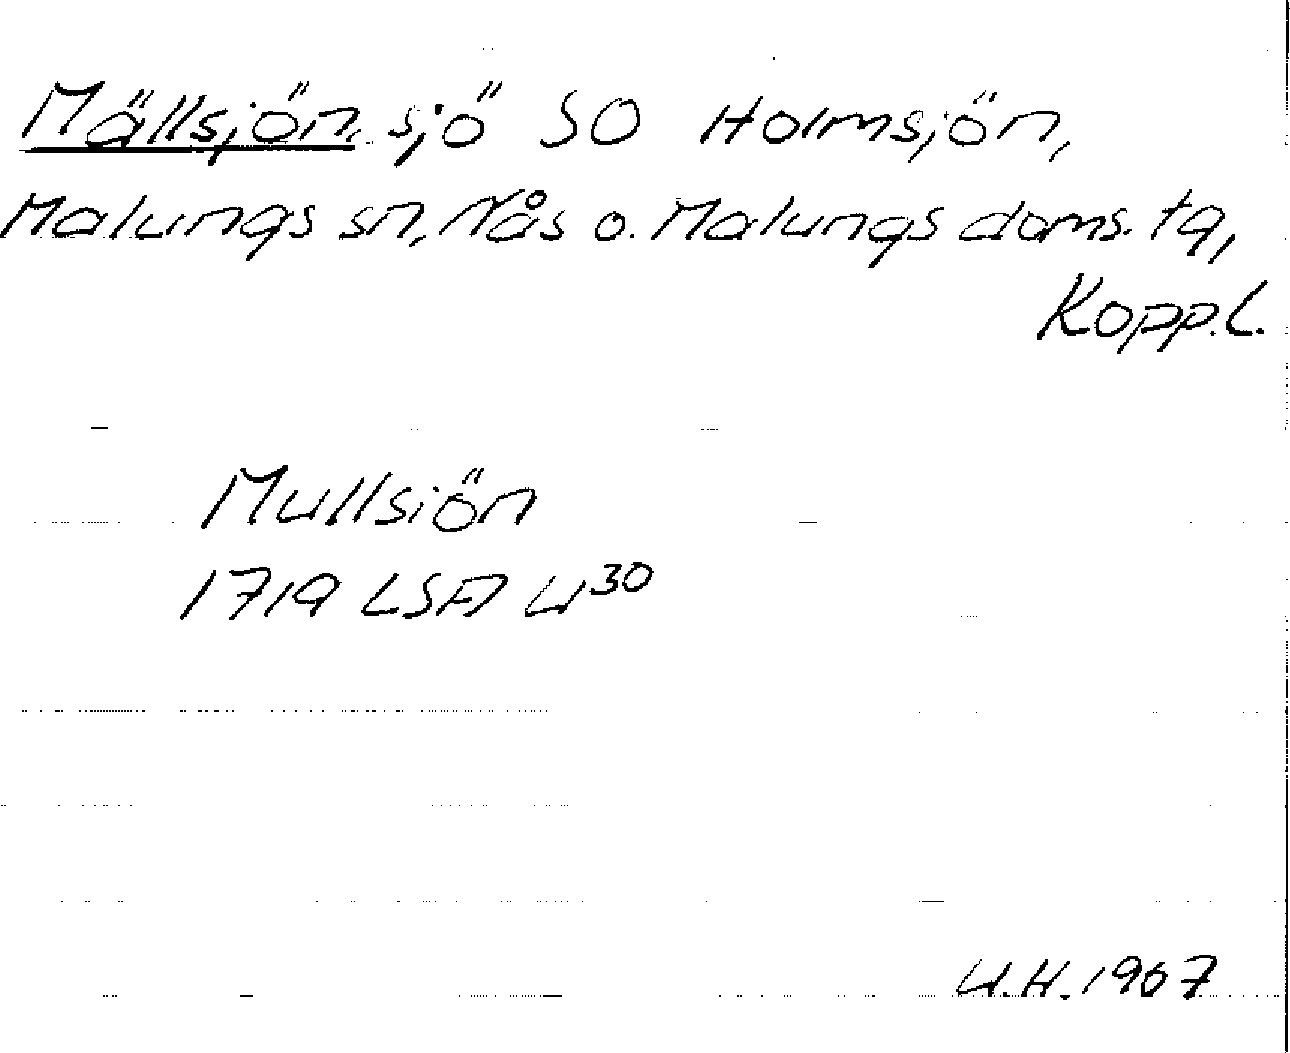 Mällsjön, sjö SO Holmsjön,
Malungs sn, Nås o. Malungs doms. tg,
Kopp. l.
Mullsiön
1719 LSA U³⁰
U.H. 1967